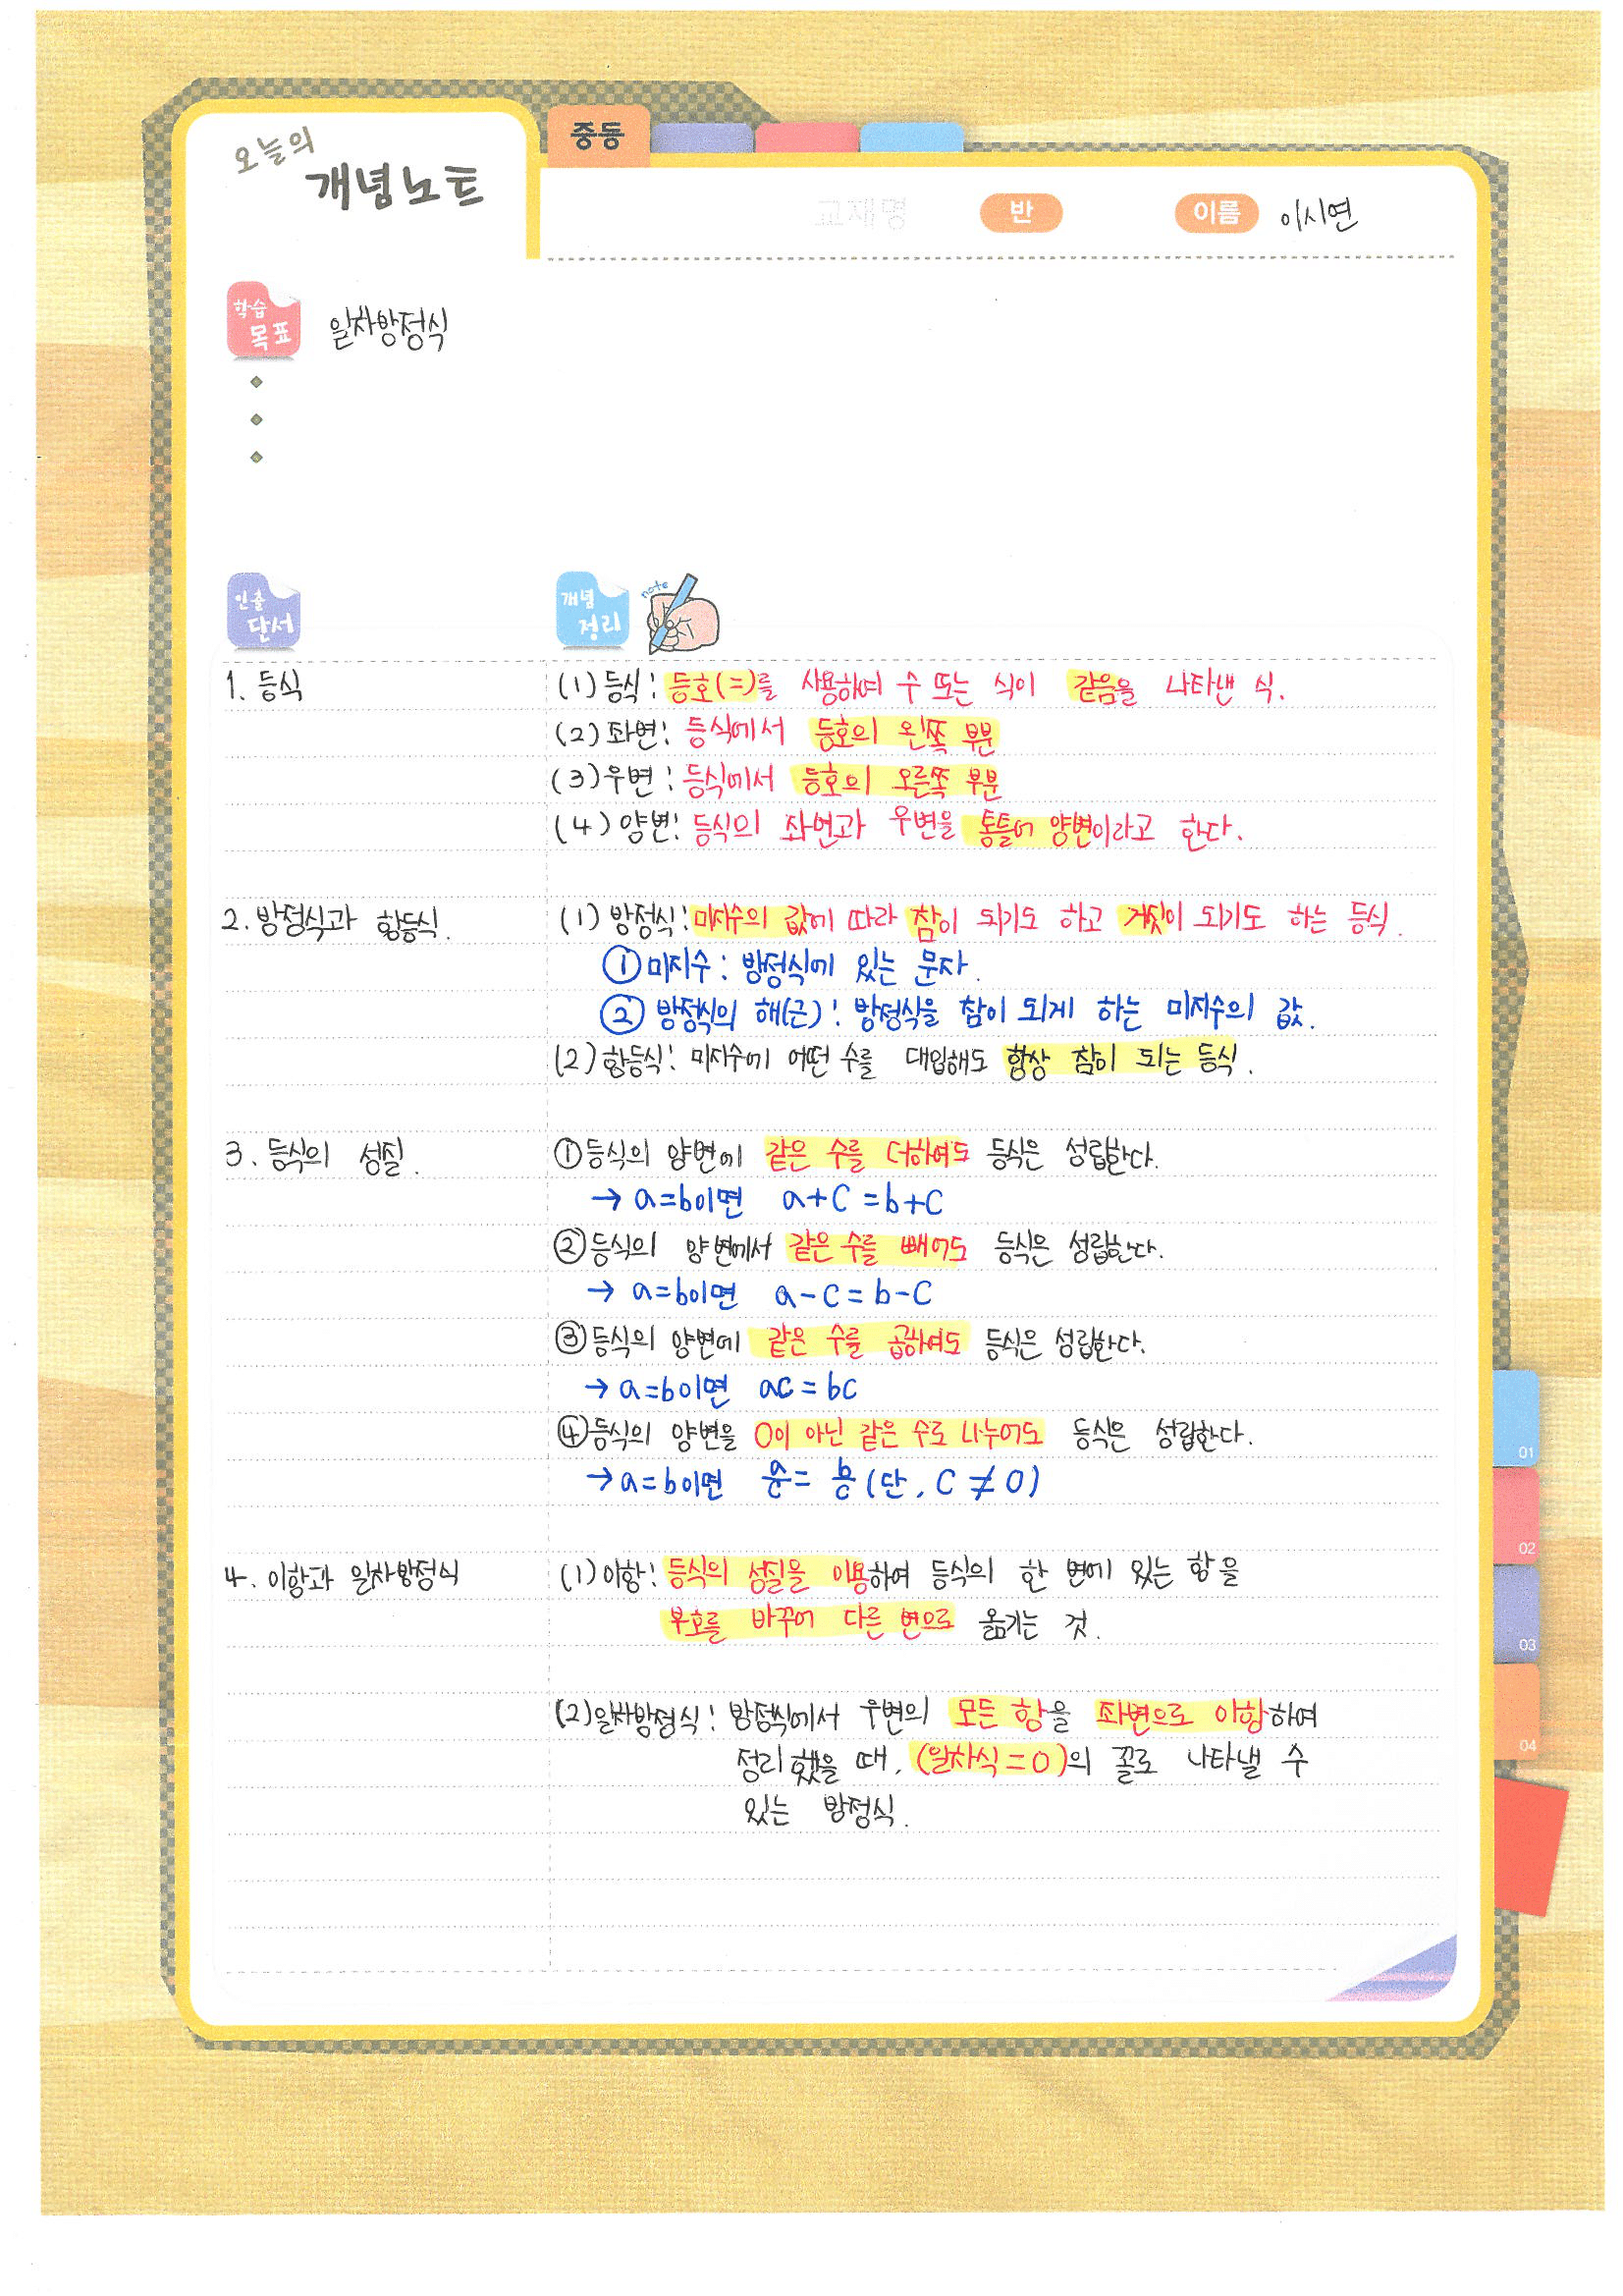 오늘의
개념노트
중등
교재명 반 이름 이시연
학습
목표 일차방정식
인출
단서
개념
정리
note
1. 등식 (1) 등식: 등호(=)를 사용하여 수 또는 식이 같음을 나타낸 식.
(2) 좌변: 등식에서 등호의 왼쪽 부분
(3) 우변: 등식에서 등호의 오른쪽 부분
(4) 양변: 등식의 좌변과 우변을 통틀어 양변이라고 한다.
2. 방정식과 항등식. (1) 방정식: 미지수의 값에 따라 참이 되기도 하고 거짓이 되기도 하는 등식.
① 미지수: 방정식에 있는 문자.
② 방정식의 해(근): 방정식을 참이 되게 하는 미지수의 값.
(2) 항등식: 미지수에 어떤 수를 대입해도 항상 참이 되는 등식.
3. 등식의 성질. ① 등식의 양변에 같은 수를 더하여도 등식은 성립한다.
→ a=b이면 a+c=b+c
② 등식의 양변에서 같은 수를 빼어도 등식은 성립한다.
→ a=b이면 a-c=b-c
③ 등식의 양변에 같은 수를 곱하여도 등식은 성립한다.
→ a=b이면 ac=bc
④ 등식의 양변을 0이 아닌 같은 수로 나누어도 등식은 성립한다.
→ a=b이면 a/c = b/c (단, c≠0)
4. 이항과 일차방정식 (1) 이항: 등식의 성질을 이용하여 등식의 한 변에 있는 항을
부호를 바꾸어 다른 변으로 옮기는 것.
(2) 일차방정식: 방정식에서 우변의 모든 항을 좌변으로 이항하여
정리했을 때, (일차식=0)의 꼴로 나타낼 수
있는 방정식.
01
02
03
04